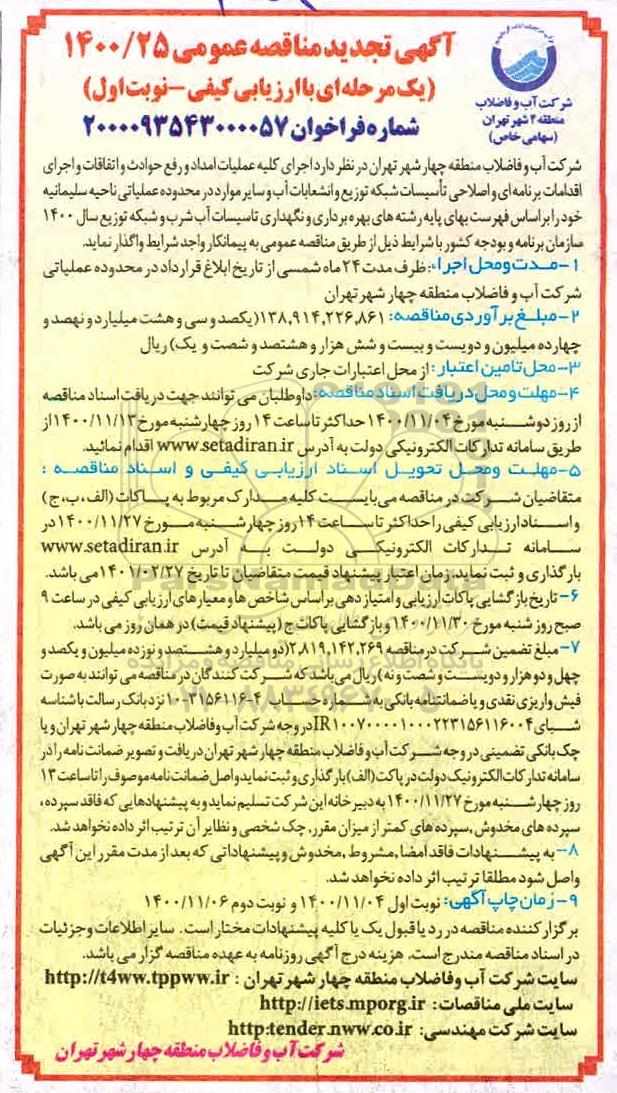 آگهی تجدید مناقصه عمومی ۱۴۰۰/۲۵
(یک مرحله‌ای با ارزیابی کیفی - نوبت اول)
شماره فراخوان ۲۰۰۰۰۹۳۵۴۳۰۰۰۰۵۷
شرکت آب و فاضلاب
منطقه ۴ شهر تهران
(سهامی خاص)
شرکت آب و فاضلاب منطقه چهار شهر تهران در نظر دارد اجرای کلیه عملیات امداد و رفع حوادث و اتفاقات و اجرای
اقدامات برنامه‌ای و اصلاحی تأسیسات شبکه توزیع و انشعابات آب و سایر موارد در محدوده عملیاتی ناحیه سلیمانیه
خود را بر اساس فهرست بهای پایه رشته های بهره برداری و نگهداری تاسیسات آب شرب و شبکه توزیع سال ۱۴۰۰
سازمان برنامه و بودجه کشور با شرایط ذیل از طریق مناقصه عمومی به پیمانکار واجد شرایط واگذار نماید.
۱- مدت و محل اجرا: ظرف مدت ۲۴ ماه شمسی از تاریخ ابلاغ قرارداد در محدوده عملیاتی
شرکت آب و فاضلاب منطقه چهار شهر تهران
۲- مبلغ برآوردی مناقصه: ۱۳۸,۹۱۴,۲۲۶,۸۶۱ (یکصد و سی و هشت میلیارد و نهصد و
چهارده میلیون و دویست و بیست و شش هزار و هشتصد و شصت و یک) ریال
۳- محل تامین اعتبار: از محل اعتبارات جاری شرکت
۴- مهلت و محل دریافت اسناد مناقصه: داوطلبان می توانند جهت دریافت اسناد مناقصه
از روز دوشنبه مورخ ۱۴۰۰/۱۱/۰۴ حداکثر تا ساعت ۱۴ روز چهارشنبه مورخ ۱۴۰۰/۱۱/۱۳ از
طریق سامانه تدارکات الکترونیکی دولت به آدرس www.setadiran.ir اقدام نمائید.
۵- مهلت و محل تحویل اسناد ارزیابی کیفی و اسناد مناقصه :
متقاضیان شرکت در مناقصه می‌بایست کلیه مدارک مربوط به پاکات (الف، ب، ج)
و اسناد ارزیابی کیفی را حداکثر تا ساعت ۱۴ روز چهارشنبه مورخ ۱۴۰۰/۱۱/۲۷ در
سامانه تدارکات الکترونیکی دولت به آدرس www.setadiran.ir
بارگذاری و ثبت نماید. زمان اعتبار پیشنهاد قیمت متقاضیان تا تاریخ ۱۴۰۱/۰۲/۲۷ می باشد.
۶- تاریخ بازگشایی پاکات ارزیابی و امتیازدهی بر اساس شاخص ها و معیارهای ارزیابی کیفی در ساعت ۹
صبح روز شنبه مورخ ۱۴۰۰/۱۱/۳۰ و بازگشایی پاکات ج (پیشنهاد قیمت) در همان روز می باشد.
۷- مبلغ تضمین شرکت در مناقصه ۲,۸۱۹,۱۴۲,۲۶۹ (دو میلیارد و هشتصد و نوزده میلیون و یکصد و
چهل و دو هزار و دویست و شصت و نه) ریال می باشد که شرکت کنندگان در مناقصه می توانند به صورت
فیش واریزی نقدی و یا ضمانتنامه بانکی به شماره حساب ۱۰-۳۱۵۶۱۱۶-۴ نزد بانک رسالت با شناسه
شبای IR۱۰۰۷۰۰۰۰۱۰۰۰۲۲۳۱۵۶۱۱۶۰۰۴ در وجه شرکت آب و فاضلاب منطقه چهار شهر تهران و یا
چک بانکی تضمینی در وجه شرکت آب و فاضلاب منطقه چهار شهر تهران دریافت و تصویر ضمانت نامه را در
سامانه تدارکات الکترونیک دولت در پاکت (الف) بارگذاری و ثبت نماید و اصل ضمانت نامه موصوف را تا ساعت ۱۳
روز چهارشنبه مورخ ۱۴۰۰/۱۱/۲۷ به دبیرخانه این شرکت تسلیم نماید و به پیشنهادهایی که فاقد سپرده،
سپرده های مخدوش، سپرده های کمتر از میزان مقرر، چک شخصی و نظایر آن ترتیب اثر داده نخواهد شد.
۸- به پیشنهادات فاقد امضا, مشروط, مخدوش و پیشنهاداتی که بعد از مدت مقرر این آگهی
واصل شود مطلقا ترتیب اثر داده نخواهد شد.
۹- زمان چاپ آگهی: نوبت اول ۱۴۰۰/۱۱/۰۴ و نوبت دوم ۱۴۰۰/۱۱/۰۶
برگزار کننده مناقصه در رد یا قبول یک یا کلیه پیشنهادات مختار است. سایر اطلاعات و جزئیات
در اسناد مناقصه مندرج است. هزینه درج آگهی روزنامه به عهده مناقصه گزار می باشد.
سایت شرکت آب و فاضلاب منطقه چهار شهر تهران : http://t4ww.tppww.ir
سایت ملی مناقصات: http://iets.mporg.ir
سایت شرکت مهندسی: http:tender.nww.co.ir
شرکت آب و فاضلاب منطقه چهار شهر تهران